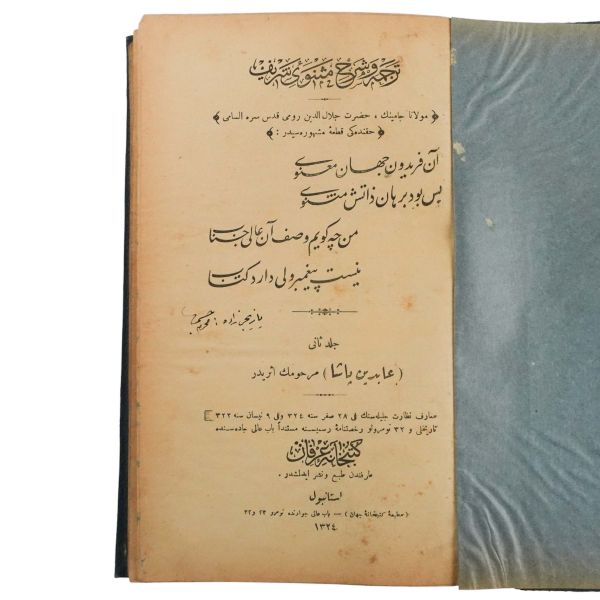 ترجمه و شرح مثنوی شریف
﴿ مولانا جامینك ، حضرت جلال الدین رومی قدس سره السامی ﴾
﴿ حقنده‌کی قطعهٔ مشهوره‌سیدر : ﴾
آن فریدون جهان معنوی
بس بود برهان ذاتش مثنوی
من چه کویم وصف آن عالی جناب
نیست پیغمبر ولی دارد کتاب
جلد ثانی
( عابدین پاشا ) مرحومك اثریدر
معارف نظارت جلیله‌سنك فی ٢٨ صفر سنه ٣٢٤ وفی ٩ نیسان سنه ٣٢٢
تاریخلی و ٣٢ نومرولو رخصتنامهٔ رسمیسنه مستنداً باب عالی جاده‌سنده
کتبخانهٔ عرفان
طرفندن طبع و نشر ایدلشدر .
استانبول
( مطبعهٔ کتبخانهٔ جهان ) — باب عالی جوارنده نومرو ٢٣ و ٢٢
١٣٢٤